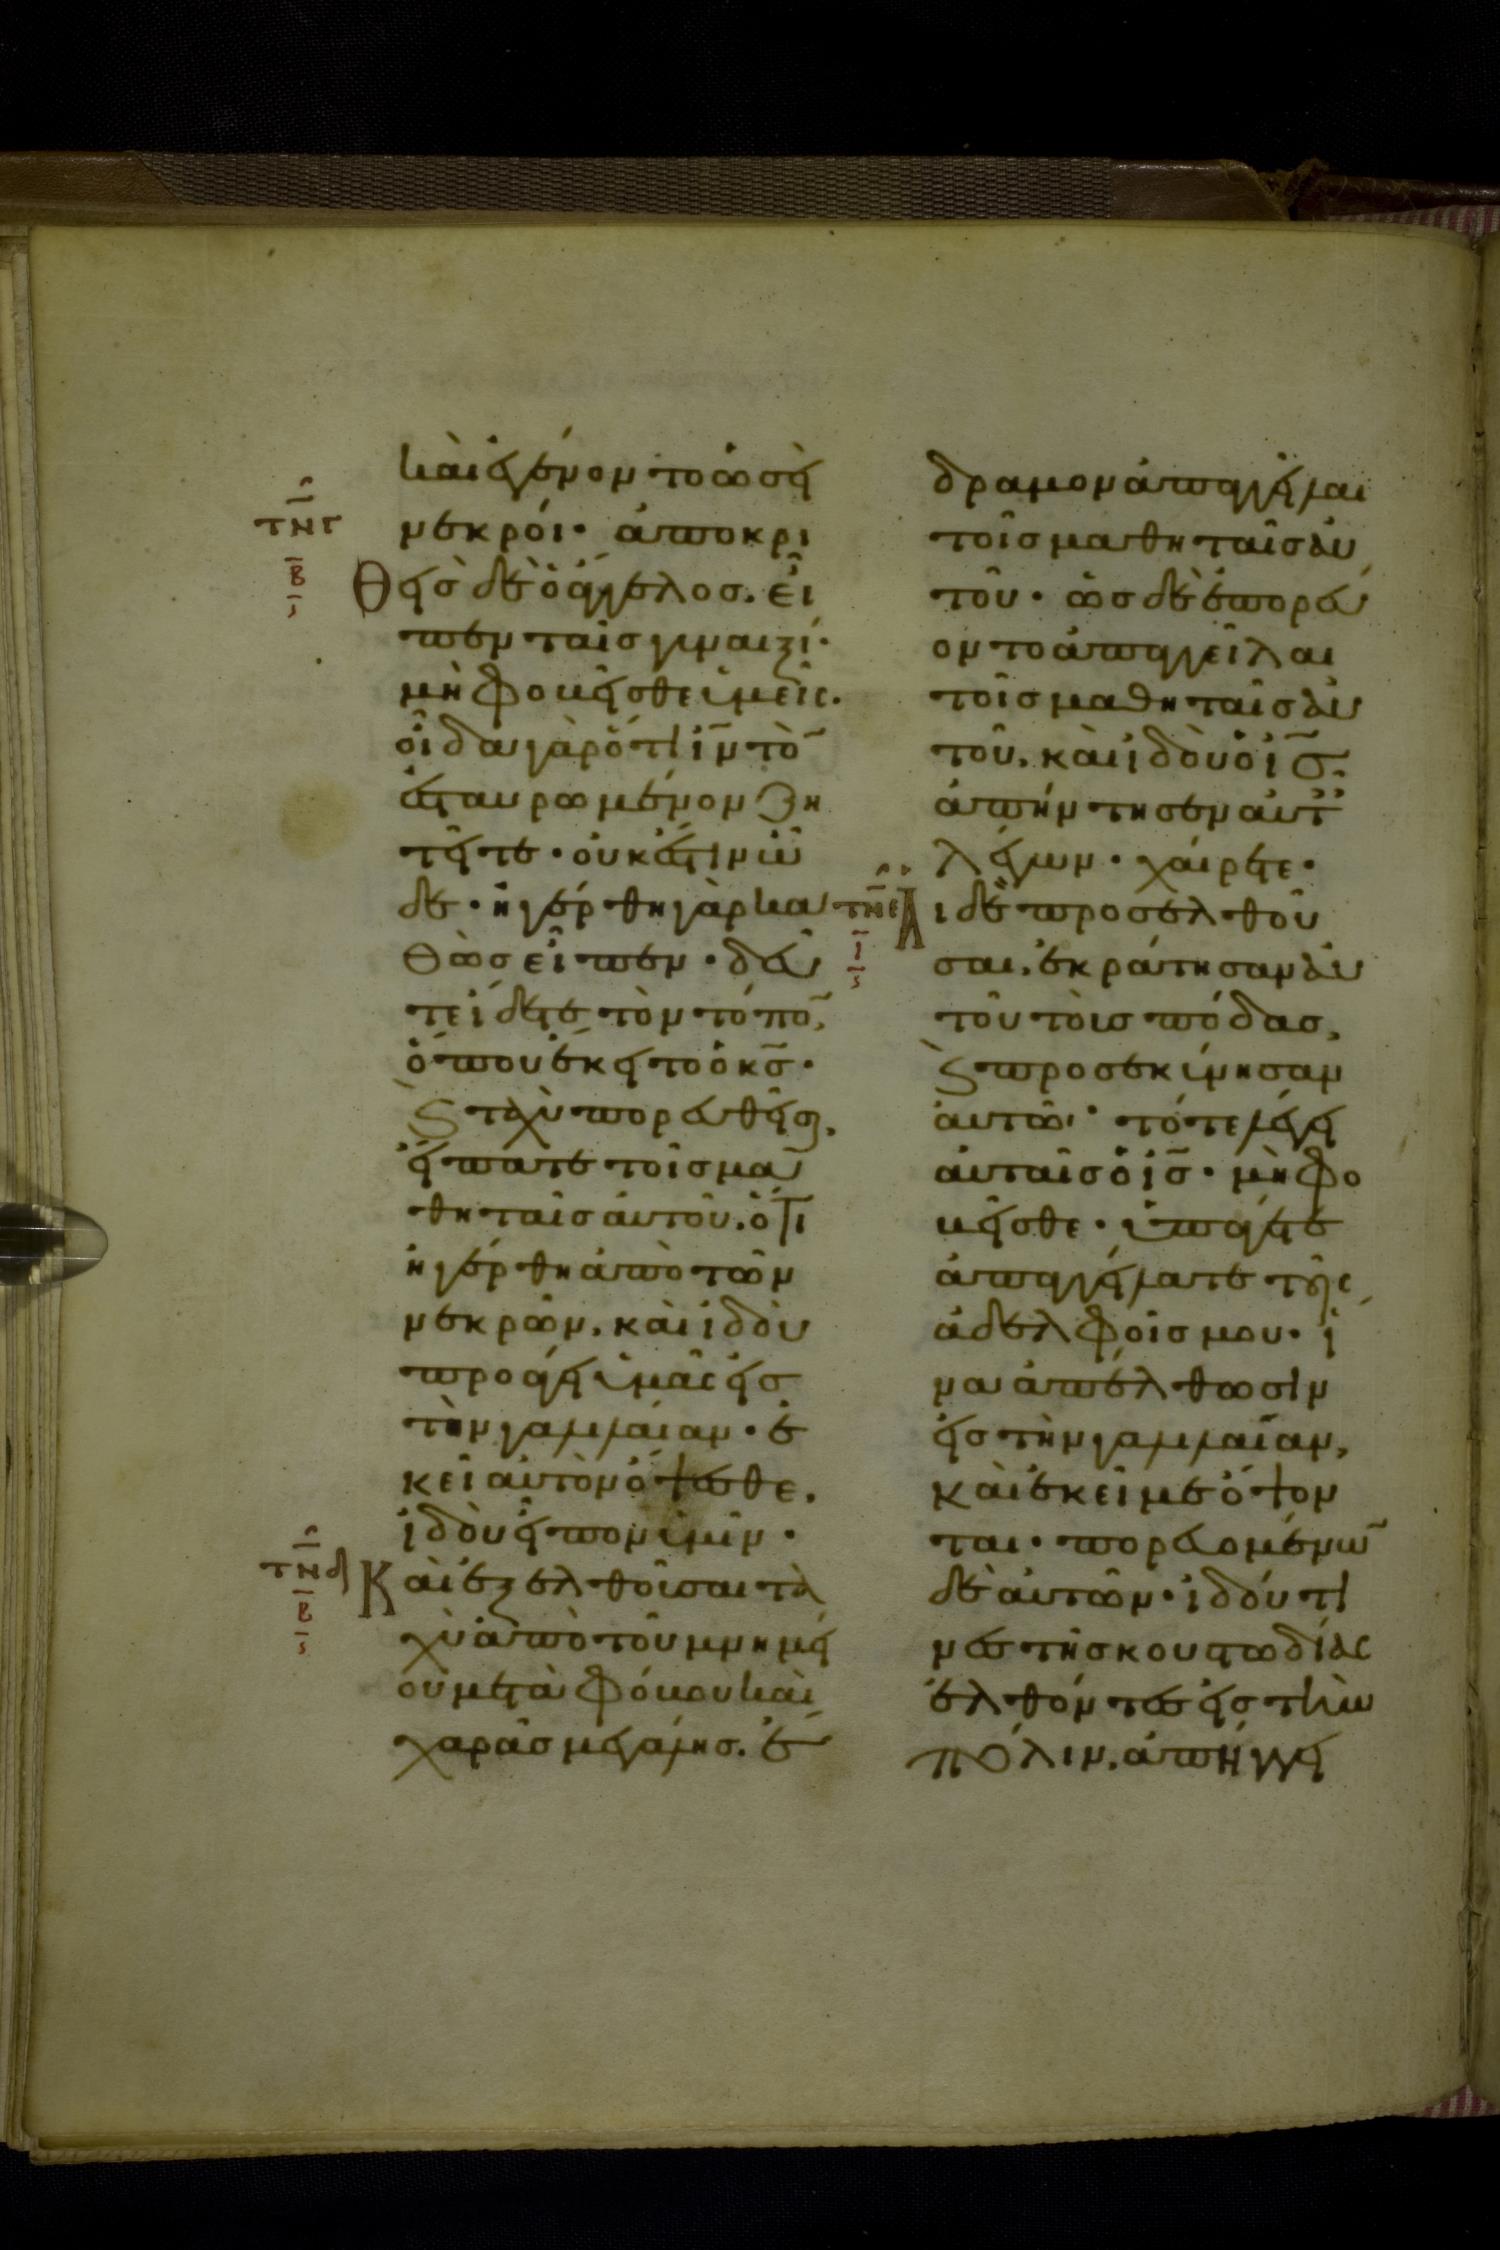 καὶ ἐγένοντο ὡσεὶ
νεκροί· ἀποκρι
θεὶς δὲ ὁ ἄγγελος. εἶ
πεν ταῖς γυναιξί·
μὴ φοβεῖσθε ὑμεῖς·
οἶδα γὰρ ὅτι ιν̅ τὸ̅
ἐσταυρωμένον ζη
τεῖτε· οὐκ ἔστιν ὧ
δε· ἠγέρθη γὰρ κα
θὼς εἶπεν· δεῦ
τε ἴδετε τὸν τόπο̅,
ὅπου ἔκειτο ὁ κς̅·
ϗ ταχὺ πορευθεῖσαι,
εἴπατε τοῖς μα
θηταῖς αὐτοῦ. ὅτι
ἠγέρθη ἀπὸ τῶν
νεκρῶν. καὶ ἰδοὺ
προάγει ὑμᾶς εἰς
τὴν γαλιλαίαν· ἐ
κεῖ αὐτὸν ὄψεσθε.
ἰδοὺ εἶπον ὑμῖν·
Καὶ ἐξελθοῦσαι τα
χὺ ἀπὸ τοῦ μνημεί
ου μετὰ φόβου καὶ
χαρᾶς μεγάλης. ἔ
τνγ
β
ς
τνδ
β
ς
δραμον ἀπαγγεῖλαι
τοῖς μαθηταῖς αὐ
τοῦ· ὡς δὲ ἐπορεύ
οντο ἀπαγγεῖλαι
τοῖς μαθηταῖς αὐ
τοῦ. καὶ ἰδοὺ ὁ ις̅
ἀπήντησεν αὐτ
λέγων· χαίρετε·
Αἱ δὲ προσελθοῦ
σαι. ἐκράτησαν αὐ
τοῦ τοὺς πόδας,
ϗ προσεκύνησαν
αὐτῶ· τότε λέγει
αὐταῖς ὁ ις̅· μὴ φο
βεῖσθε· ὑπάγετε
ἀπαγγείλατε τοῖς
ἀδελφοῖς μου· ἵ
να ἀπέλθωσιν
εἰς τὴν γαλιλαίαν,
καὶ ἐκεῖ με ὄψον
ται· πορευομένω̅
δὲ αὐτῶν· ἰδού τι
νες τῆς κουστωδίας
ἐλθόντες εἰς τὴν
πόλιν. ἀπήγγει
τνε
ι
ς